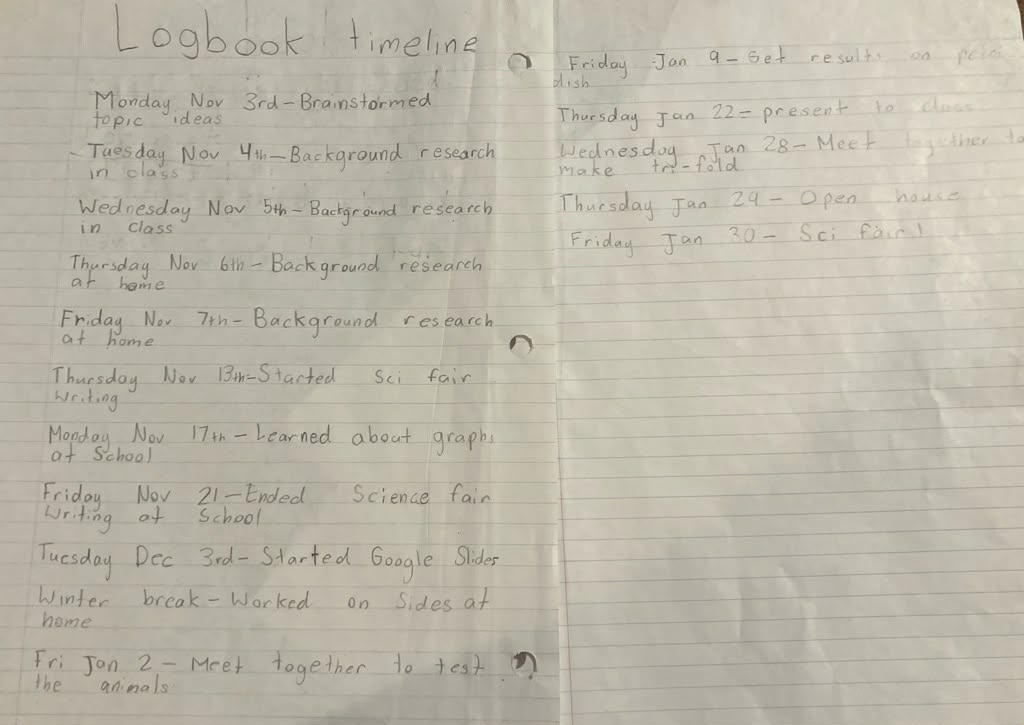 Logbook timeline
Monday Nov 3rd – Brainstormed
topic ideas
- Tuesday Nov 4th – Background research
in class
Wednesday Nov 5th – Background research
in class
Thursday Nov 6th – Background research
at home
Friday Nov 7th – Background research
at home
Thursday Nov 13th – Started Sci fair
writing
Monday Nov 17th – Learned about graphs
at School
Friday Nov 21 – Ended Science fair
Writing at School
Tuesday Dec 3rd – Started Google Slides
Winter break – Worked on Sides at
home
Fri Jan 2 – Meet together to test
the animals
Friday Jan 9 – Get results on
dish
Thursday Jan 22 – present to class
Wednesday Jan 28 – Meet together to
make tri-fold
Thursday Jan 29 – Open house
Friday Jan 30 – Sci fair!